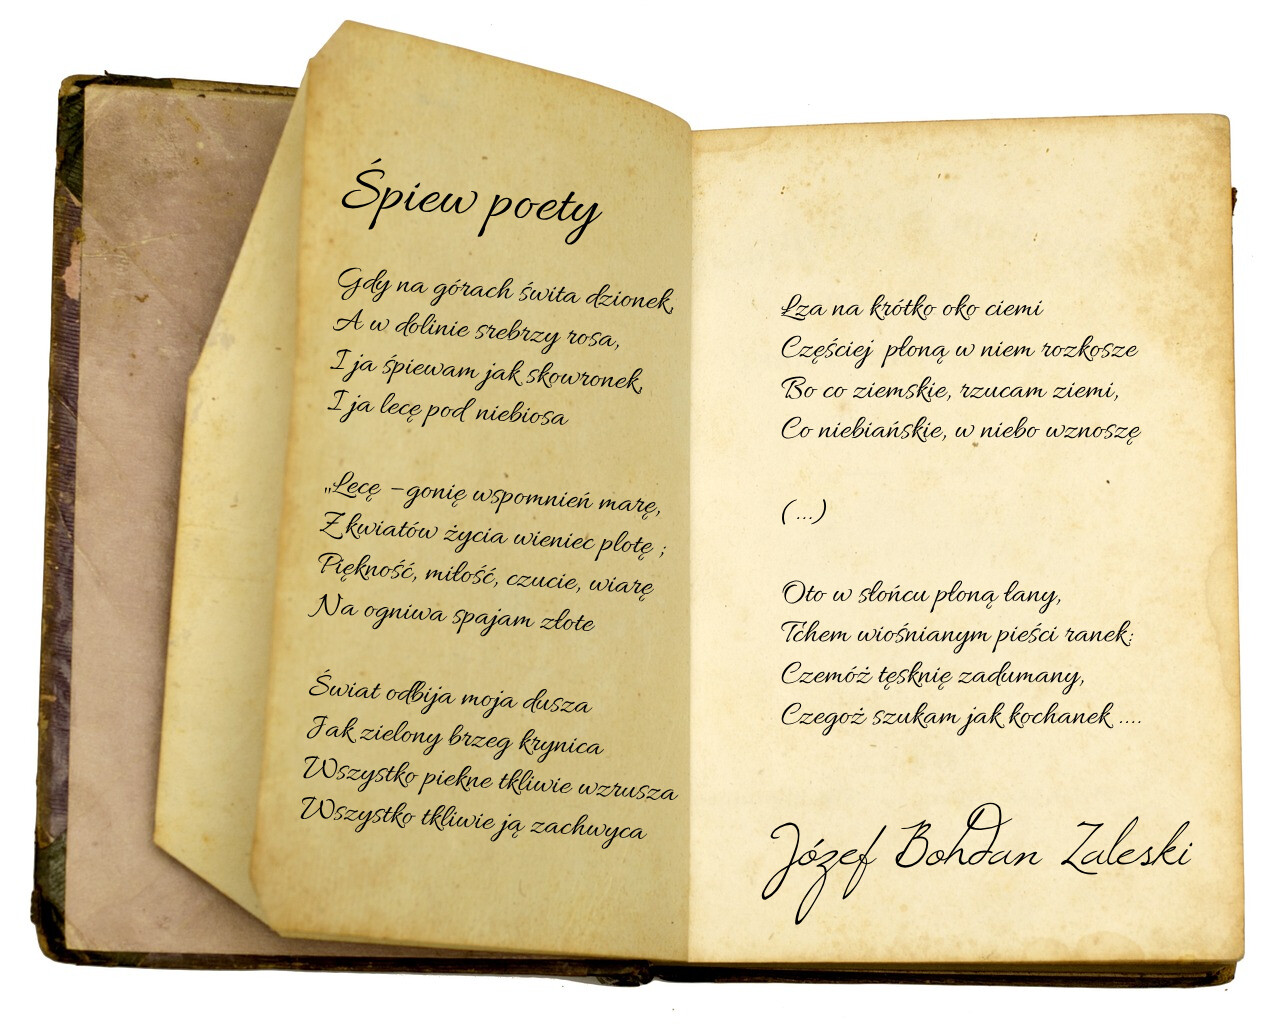 Śpiew poety
Gdy na górach świta dzionek,
A w dolinie srebrzy rosa,
I ja śpiewam jak skowronek,
I ja lecę pod niebiosa
„Lecę – gonię wspomnień marę,
Z kwiatów życia wieniec plotę ;
Piękność, miłość, czucie, wiarę
Na ogniwa spajam złote
Świat odbija moja dusza
Jak zielony brzeg krynica
Wszystko piekne tkliwie wzrusza
Wszystko tkliwie ją zachwyca
Łza na krótko oko ciemi
Częściej płoną w niem rozkosze
Bo co ziemskie, rzucam ziemi,
Co niebiańskie, w niebo wznoszę
(...)
Oto w słońcu płoną łany,
Tchem wiośnianym pieści ranek;
Czemóż tęsknię zadumany,
Czegoż szukam jak kochanek ....
Józef Bohdan Zaleski